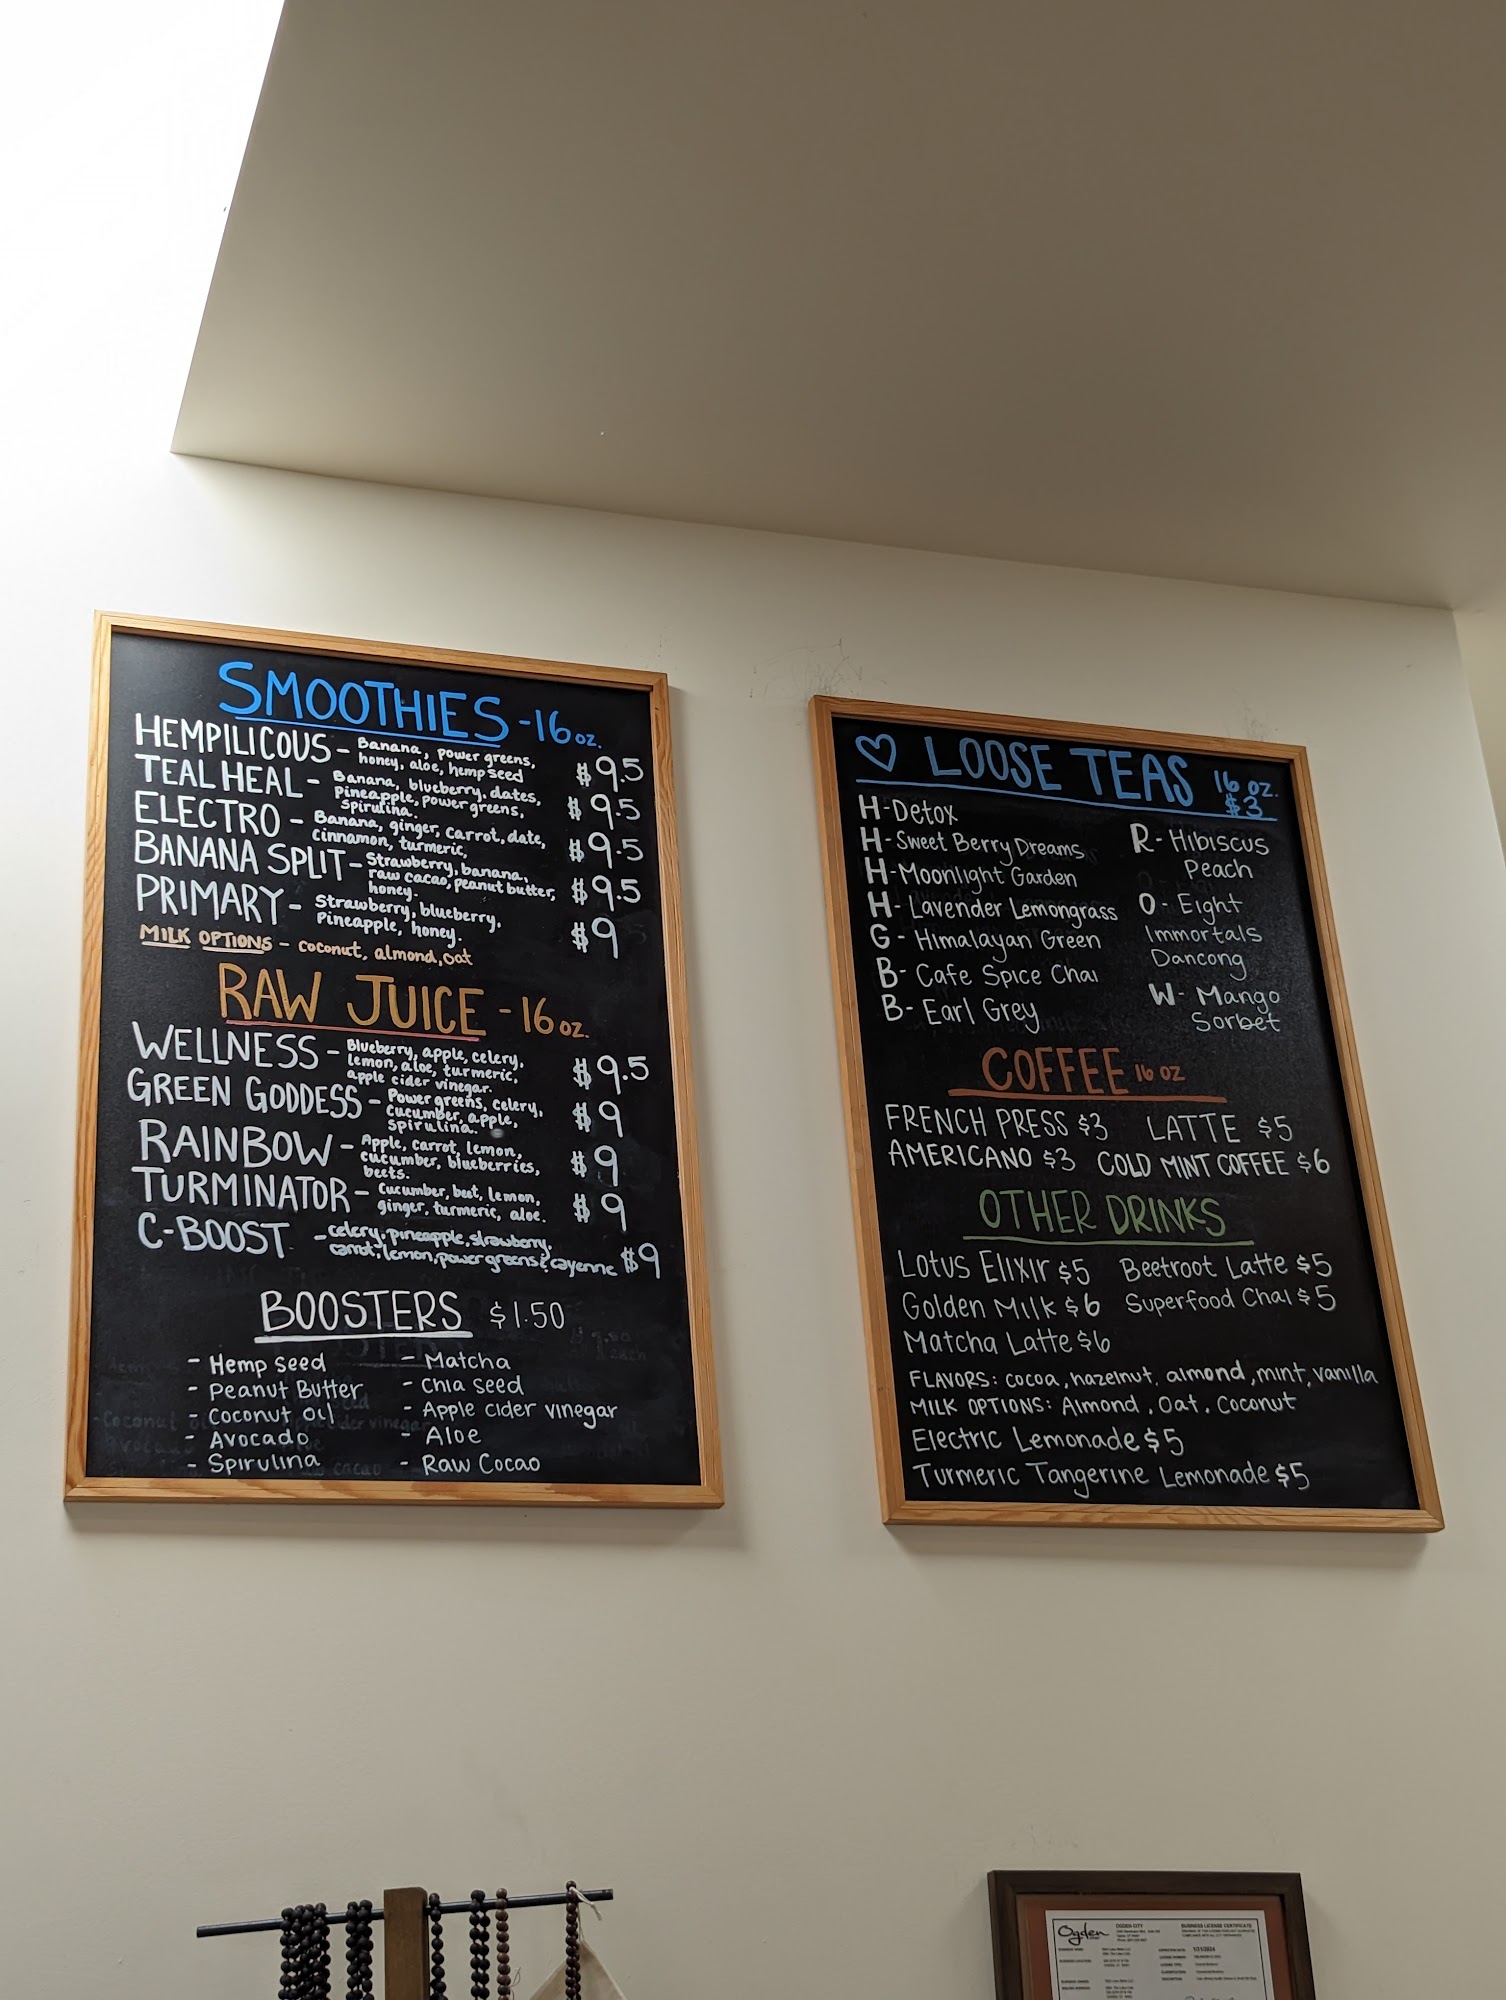 SMOOTHIES - 16 oz.
HEMPILICOUS - Banana, power greens,
honey, aloe, hemp seed $9.5
TEAL HEAL - Banana, blueberry, dates,
Pineapple, power greens,
spirulina. $9.5
ELECTRO - Banana, ginger, carrot, date,
cinnamon, turmeric, $9.5
BANANA SPLIT - Strawberry, banana,
raw cacao, peanut butter,
honey. $9.5
PRIMARY - Strawberry, blueberry,
Pineapple, honey. $9
MILK OPTIONS - coconut, almond, oat
RAW JUICE - 16 oz.
WELLNESS - Blueberry, apple, celery,
lemon, aloe, turmeric,
apple cider vinegar. $9.5
GREEN GODDESS - Power greens, celery,
cucumber, apple,
spirulina. $9
RAINBOW - Apple, carrot, lemon,
cucumber, blueberries,
beets. $9
TURMINATOR - Cucumber, beet, lemon,
ginger, turmeric, aloe. $9
C-BOOST - celery, pineapple, strawberry,
carrot, lemon, power greens & cayenne $9
BOOSTERS $1.50
- Hemp seed
- Peanut Butter
- Coconut Oil
- Avocado
- Spirulina
- Matcha
- Chia seed
- Apple cider vinegar
- Aloe
- Raw Cocao
♡ LOOSE TEAS 16 oz.
$3
H - Detox
H - Sweet Berry Dreams
H - Moonlight Garden
H - Lavender Lemongrass
G - Himalayan Green
B - Cafe Spice Chai
B - Earl Grey
R - Hibiscus
Peach
O - Eight
Immortals
Dancong
W - Mango
Sorbet
COFFEE 16 oz
FRENCH PRESS $3 LATTE $5
AMERICANO $3 COLD MINT COFFEE $6
OTHER DRINKS
Lotus Elixir $5 Beetroot Latte $5
Golden Milk $6 Superfood Chai $5
Matcha Latte $6
FLAVORS: cocoa, hazelnut, almond, mint, vanilla
MILK OPTIONS: Almond, Oat, Coconut
Electric Lemonade $5
Turmeric Tangerine Lemonade $5
Ogden
OGDEN CITY
BUSINESS LICENSE CERTIFICATE